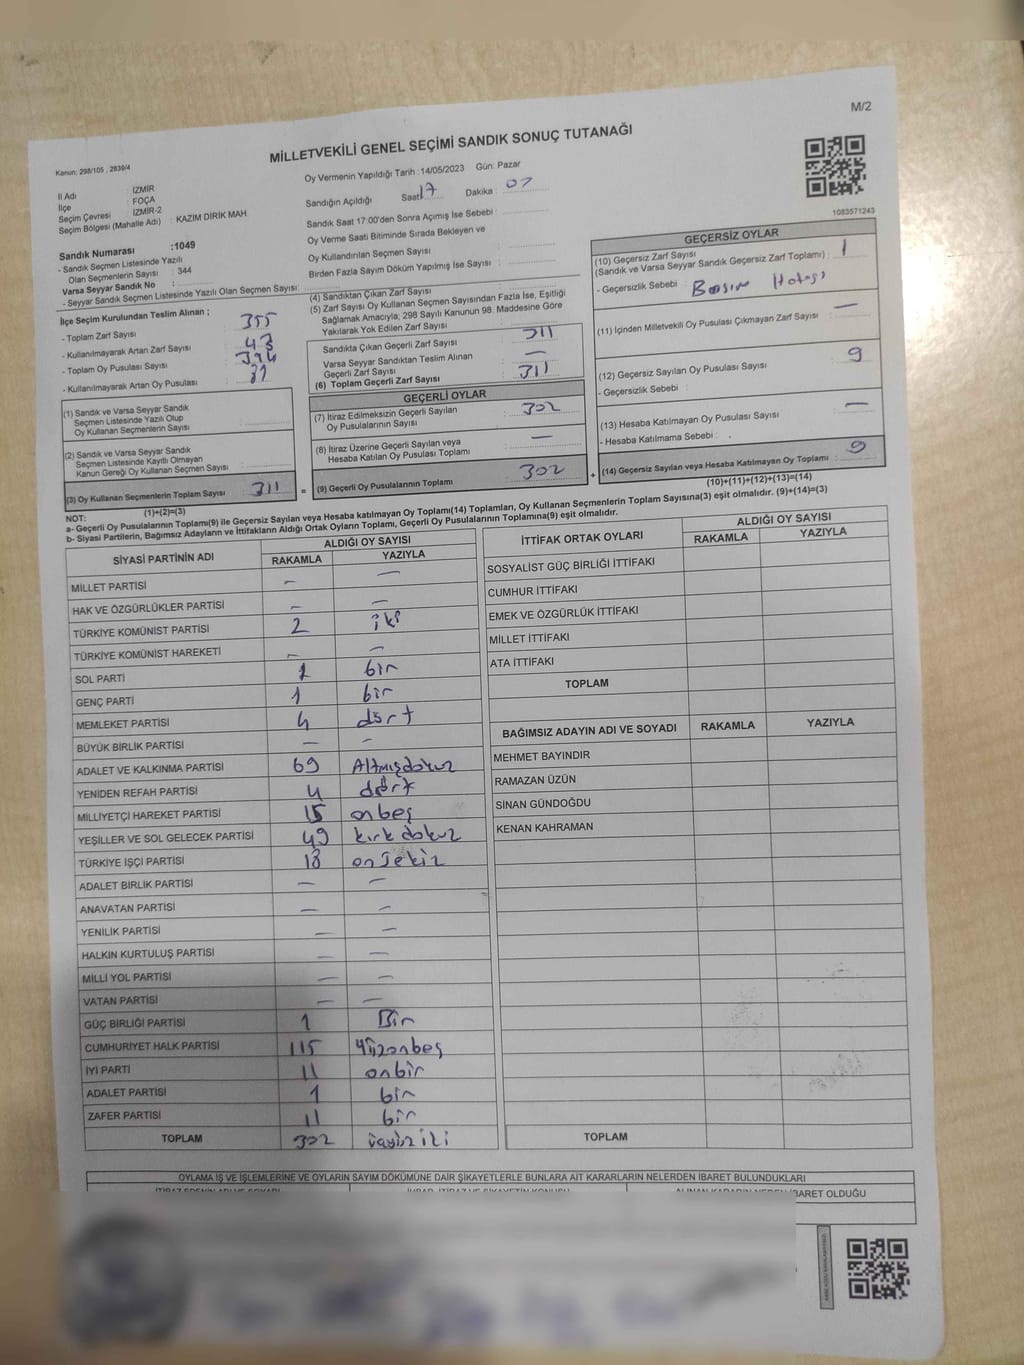 M/2
MİLLETVEKİLİ GENEL SEÇİMİ SANDIK SONUÇ TUTANAĞI
Kanun: 298/105 , 2839/4
Oy Vermenin Yapıldığı Tarih : 14/05/2023 Gün: Pazar
İl Adı : İZMİR
İlçe : FOÇA
Seçim Çevresi : İZMİR-2
Seçim Bölgesi (Mahalle Adı) : KAZIM DİRİK MAH.
Sandığın Açıldığı Saat 17 Dakika : 07
Sandık Saat 17:00'den Sonra Açımış İse Sebebi :
Oy Verme Saati Bitiminde Sırada Bekleyen ve
Oy Kullandırılan Seçmen Sayısı :
Birden Fazla Sayım Döküm Yapılmış İse Sayısı :
1083571243
Sandık Numarası :1049
- Sandık Seçmen Listesinde Yazılı
Olan Seçmenlerin Sayısı : 344
Varsa Seyyar Sandık No :
- Seyyar Sandık Seçmen Listesinde Yazılı Olan Seçmen Sayısı:
İlçe Seçim Kurulundan Teslim Alınan ;
- Toplam Zarf Sayısı : 355
- Kullanılmayarak Artan Zarf Sayısı : 43
- Toplam Oy Pusulası Sayısı :
- Kullanılmayarak Artan Oy Pusulası :
(1) Sandık ve Varsa Seyyar Sandık
Seçmen Listesinde Yazılı Olup
Oy Kullanan Seçmenlerin Sayısı :
(2) Sandık ve Varsa Seyyar Sandık
Seçmen Listesinde Kayıtlı Olmayan
Kanun Gereği Oy Kullanan Seçmen Sayısı :
(3) Oy Kullanan Seçmenlerin Toplam Sayısı : 311
(1)+(2)=(3)
(4) Sandıktan Çıkan Zarf Sayısı :
(5) Zarf Sayısı Oy Kullanan Seçmen Sayısından Fazla İse, Eşitliği
Sağlamak Amacıyla; 298 Sayılı Kanunun 98. Maddesine Göre
Yakılarak Yok Edilen Zarf Sayısı :
Sandıkta Çıkan Geçerli Zarf Sayısı : 311
Varsa Seyyar Sandıktan Teslim Alınan
Geçerli Zarf Sayısı : —
(6) Toplam Geçerli Zarf Sayısı : 311
GEÇERLİ OYLAR
(7) İtiraz Edilmeksizin Geçerli Sayılan
Oy Pusulalarının Sayısı : 302
(8) İtiraz Üzerine Geçerli Sayılan veya
Hesaba Katılan Oy Pusulası Toplamı : —
= (9) Geçerli Oy Pusulalarının Toplamı : 302 +
GEÇERSİZ OYLAR
(10) Geçersiz Zarf Sayısı
(Sandık ve Varsa Seyyar Sandık Geçersiz Zarf Toplamı) : 1
- Geçersizlik Sebebi : Basım Hatası
(11) İçinden Milletvekili Oy Pusulası Çıkmayan Zarf Sayısı : —
(12) Geçersiz Sayılan Oy Pusulası Sayısı : 9
- Geçersizlik Sebebi :
(13) Hesaba Katılmayan Oy Pusulası Sayısı : —
- Hesaba Katılmama Sebebi :
(14) Geçersiz Sayılan veya Hesaba Katılmayan Oy Toplamı : 9
(10)+(11)+(12)+(13)=(14)
NOT:
a- Geçerli Oy Pusulalarının Toplamı(9) ile Geçersiz Sayılan veya Hesaba katılmayan Oy Toplamı(14) Toplamları, Oy Kullanan Seçmenlerin Toplam Sayısına(3) eşit olmalıdır. (9)+(14)=(3)
b- Siyasi Partilerin, Bağımsız Adayların ve İttifakların Aldığı Ortak Oyların Toplamı, Geçerli Oy Pusulalarının Toplamına(9) eşit olmalıdır.
SİYASİ PARTİNİN ADI ALDIĞI OY SAYISI
RAKAMLA YAZIYLA
MİLLET PARTİSİ — —
HAK VE ÖZGÜRLÜKLER PARTİSİ — —
TÜRKİYE KOMÜNİST PARTİSİ 2 iki
TÜRKİYE KOMÜNİST HAREKETİ — —
SOL PARTİ 1 bir
GENÇ PARTİ 1 bir
MEMLEKET PARTİSİ 4 dört
BÜYÜK BİRLİK PARTİSİ — —
ADALET VE KALKINMA PARTİSİ 69 Altmışdokuz
YENİDEN REFAH PARTİSİ 4 dört
MİLLİYETÇİ HAREKET PARTİSİ 15 onbeş
YEŞİLLER VE SOL GELECEK PARTİSİ 49 kırkdokuz
TÜRKİYE İŞÇİ PARTİSİ 18 onsekiz
ADALET BİRLİK PARTİSİ — —
ANAVATAN PARTİSİ — —
YENİLİK PARTİSİ — —
HALKIN KURTULUŞ PARTİSİ — —
MİLLİ YOL PARTİSİ — —
VATAN PARTİSİ — —
GÜÇ BİRLİĞİ PARTİSİ 1 Bir
CUMHURİYET HALK PARTİSİ 115 Yüzonbeş
İYİ PARTİ 11 onbir
ADALET PARTİSİ 1 bir
ZAFER PARTİSİ 11 bir
TOPLAM 302
İTTİFAK ORTAK OYLARI ALDIĞI OY SAYISI
RAKAMLA YAZIYLA
SOSYALİST GÜÇ BİRLİĞİ İTTİFAKI
CUMHUR İTTİFAKI
EMEK VE ÖZGÜRLÜK İTTİFAKI
MİLLET İTTİFAKI
ATA İTTİFAKI
TOPLAM
BAĞIMSIZ ADAYIN ADI VE SOYADI RAKAMLA YAZIYLA
MEHMET BAYINDIR
RAMAZAN ÜZÜN
SİNAN GÜNDOĞDU
KENAN KAHRAMAN
TOPLAM
OYLAMA İŞ VE İŞLEMLERİNE VE OYLARIN SAYIM DÖKÜMÜNE DAİR ŞİKAYETLERLE BUNLARA AİT KARARLARIN NELERDEN İBARET BULUNDUKLARI
İBARET OLDUĞU